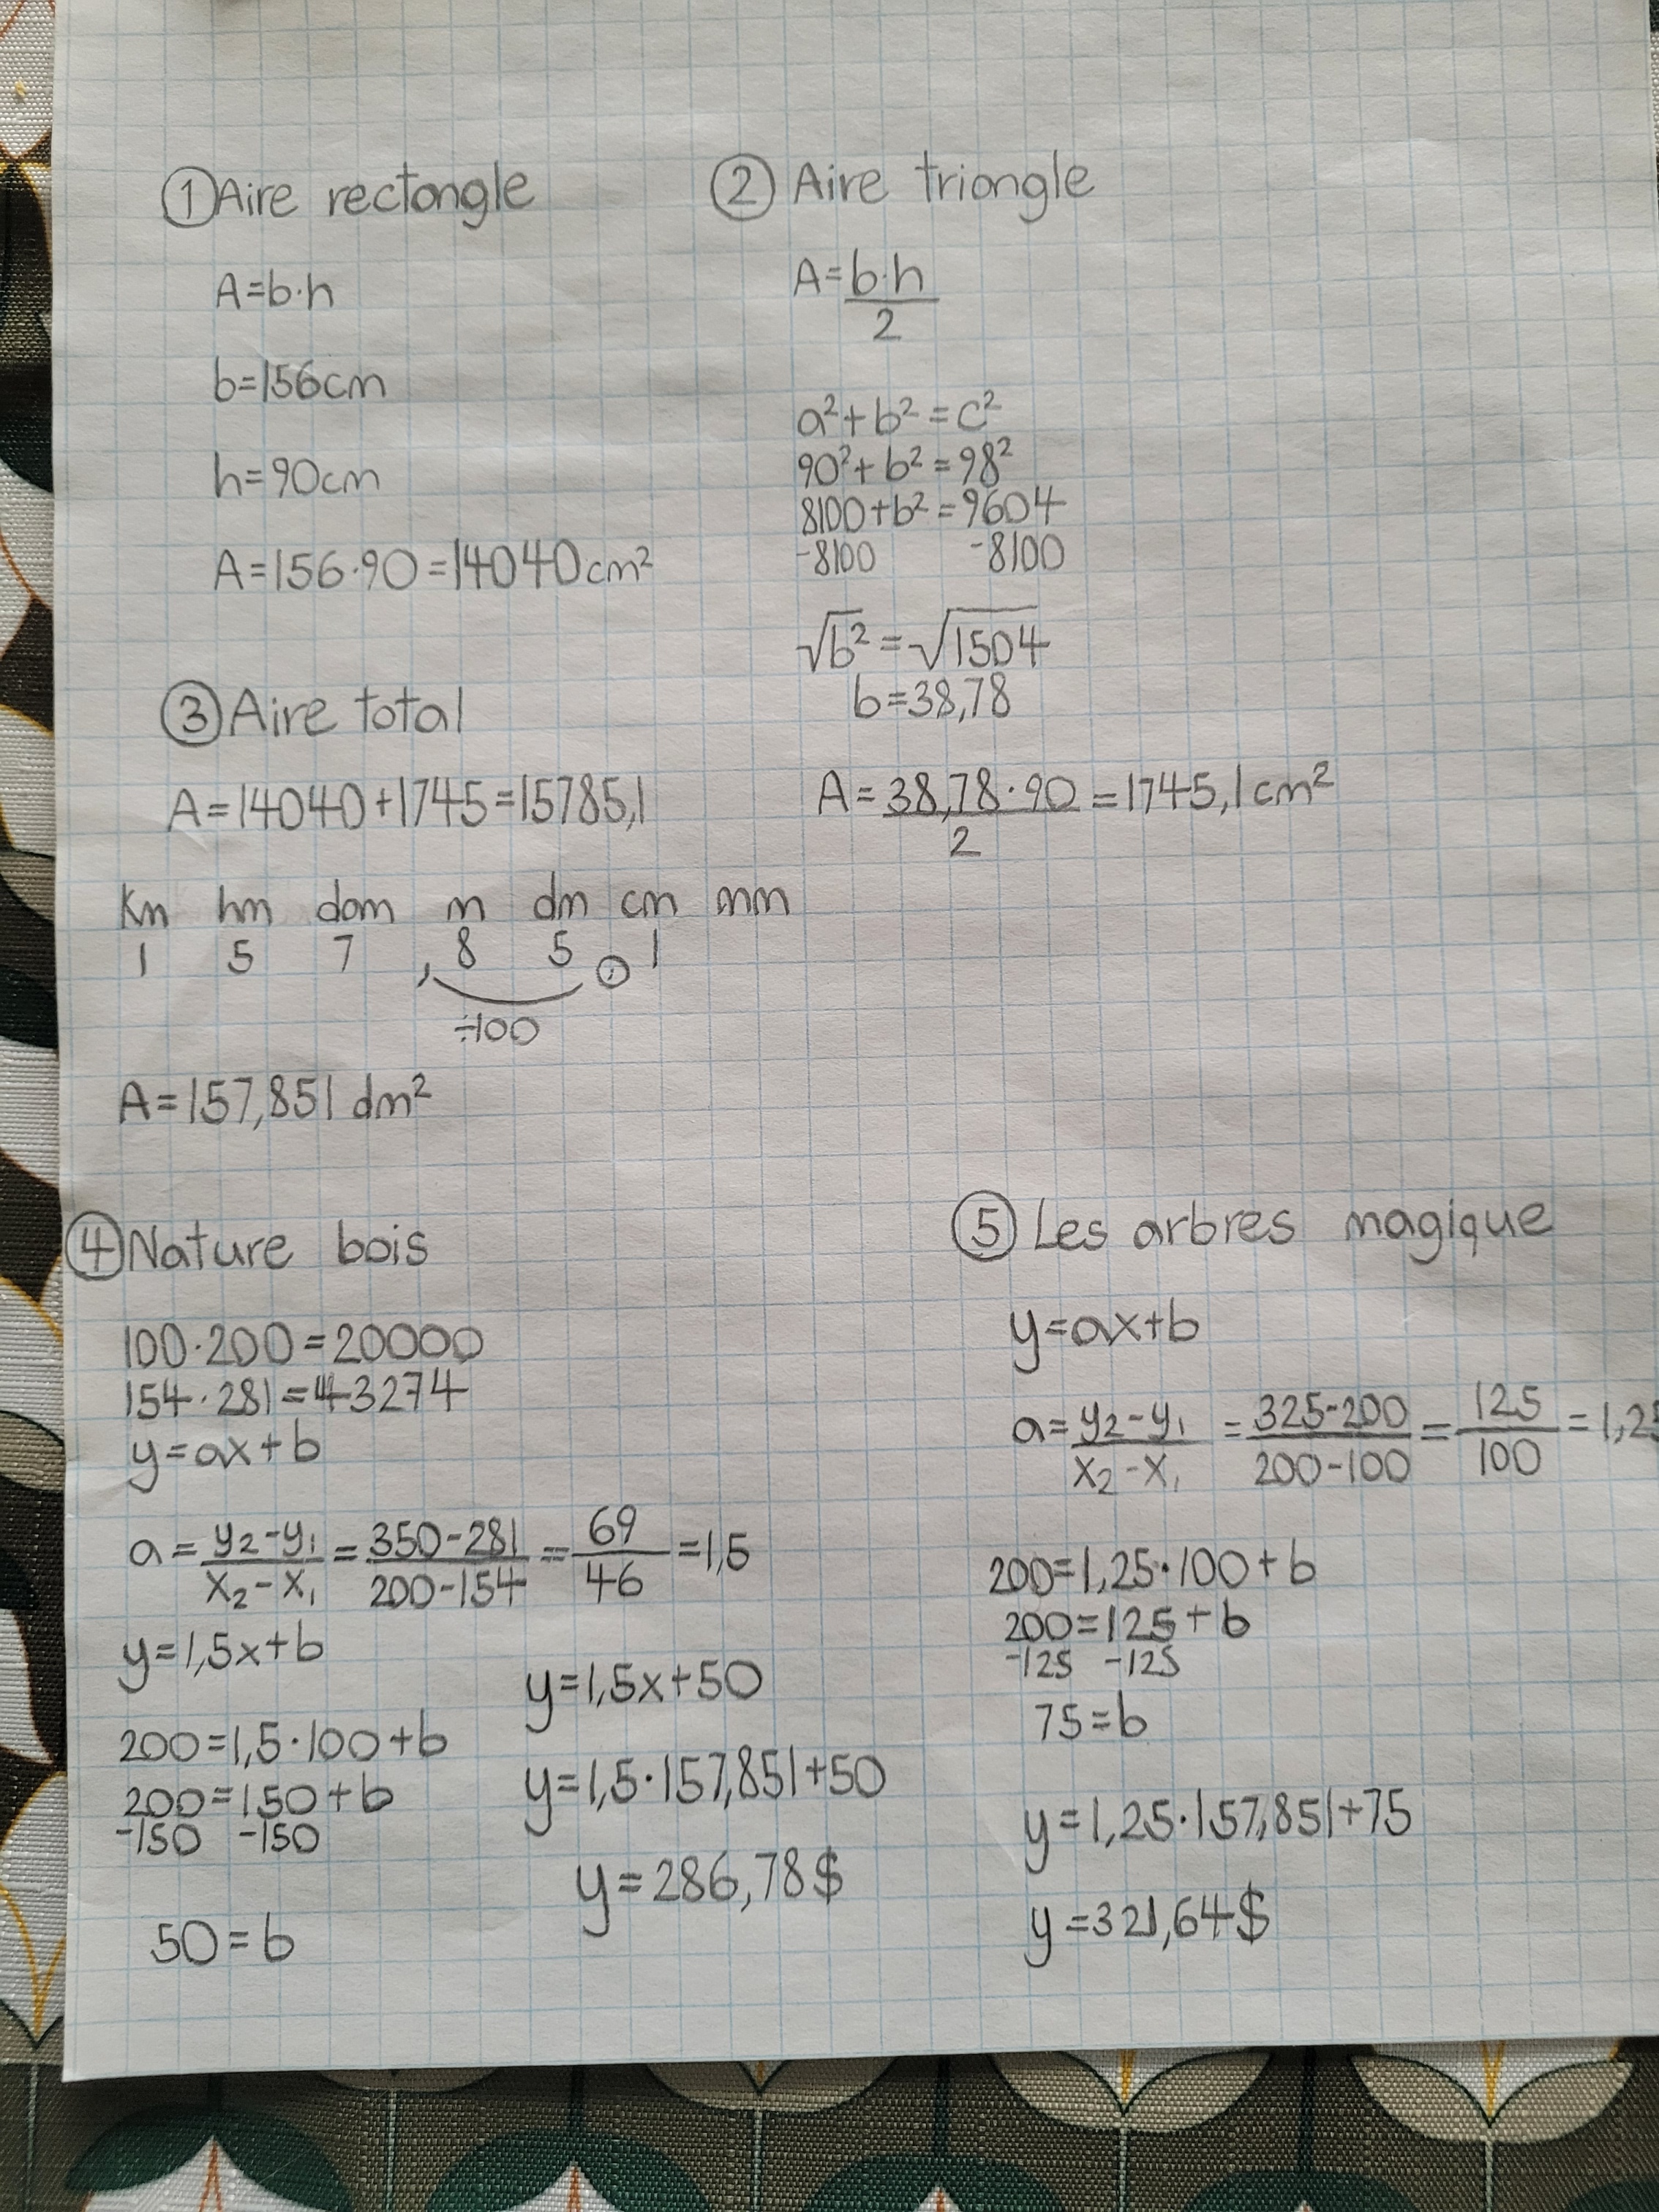 ① Aire rectangle
A=b·h
b=156cm
h=90cm
A=156·90=14040cm²
② Aire triangle
A=b·h/2
a²+b²=c²
90²+b²=98²
8100+b²=9604
-8100 -8100
√b²=√1504
b=38,78
A=38,78·90/2=1745,1cm²
③ Aire total
A=14040+1745=15785,1
Km hm dam m dm cm mm
1 5 7 , 8 5 , 1
÷100
A=157,851 dm²
④ Nature bois
100·200=20000
154·281=43274
y=ax+b
a=y₂-y₁/x₂-x₁=350-281/200-154=69/46=1,5
y=1,5x+b
200=1,5·100+b
200=150+b
-150 -150
50=b
y=1,5x+50
y=1,5·157,851+50
y=286,78$
⑤ Les arbres magique
y=ax+b
a=y₂-y₁/x₂-x₁=325-200/200-100=125/100=1,25
200=1,25·100+b
200=125+b
-125 -125
75=b
y=1,25·157,851+75
y=321,64$